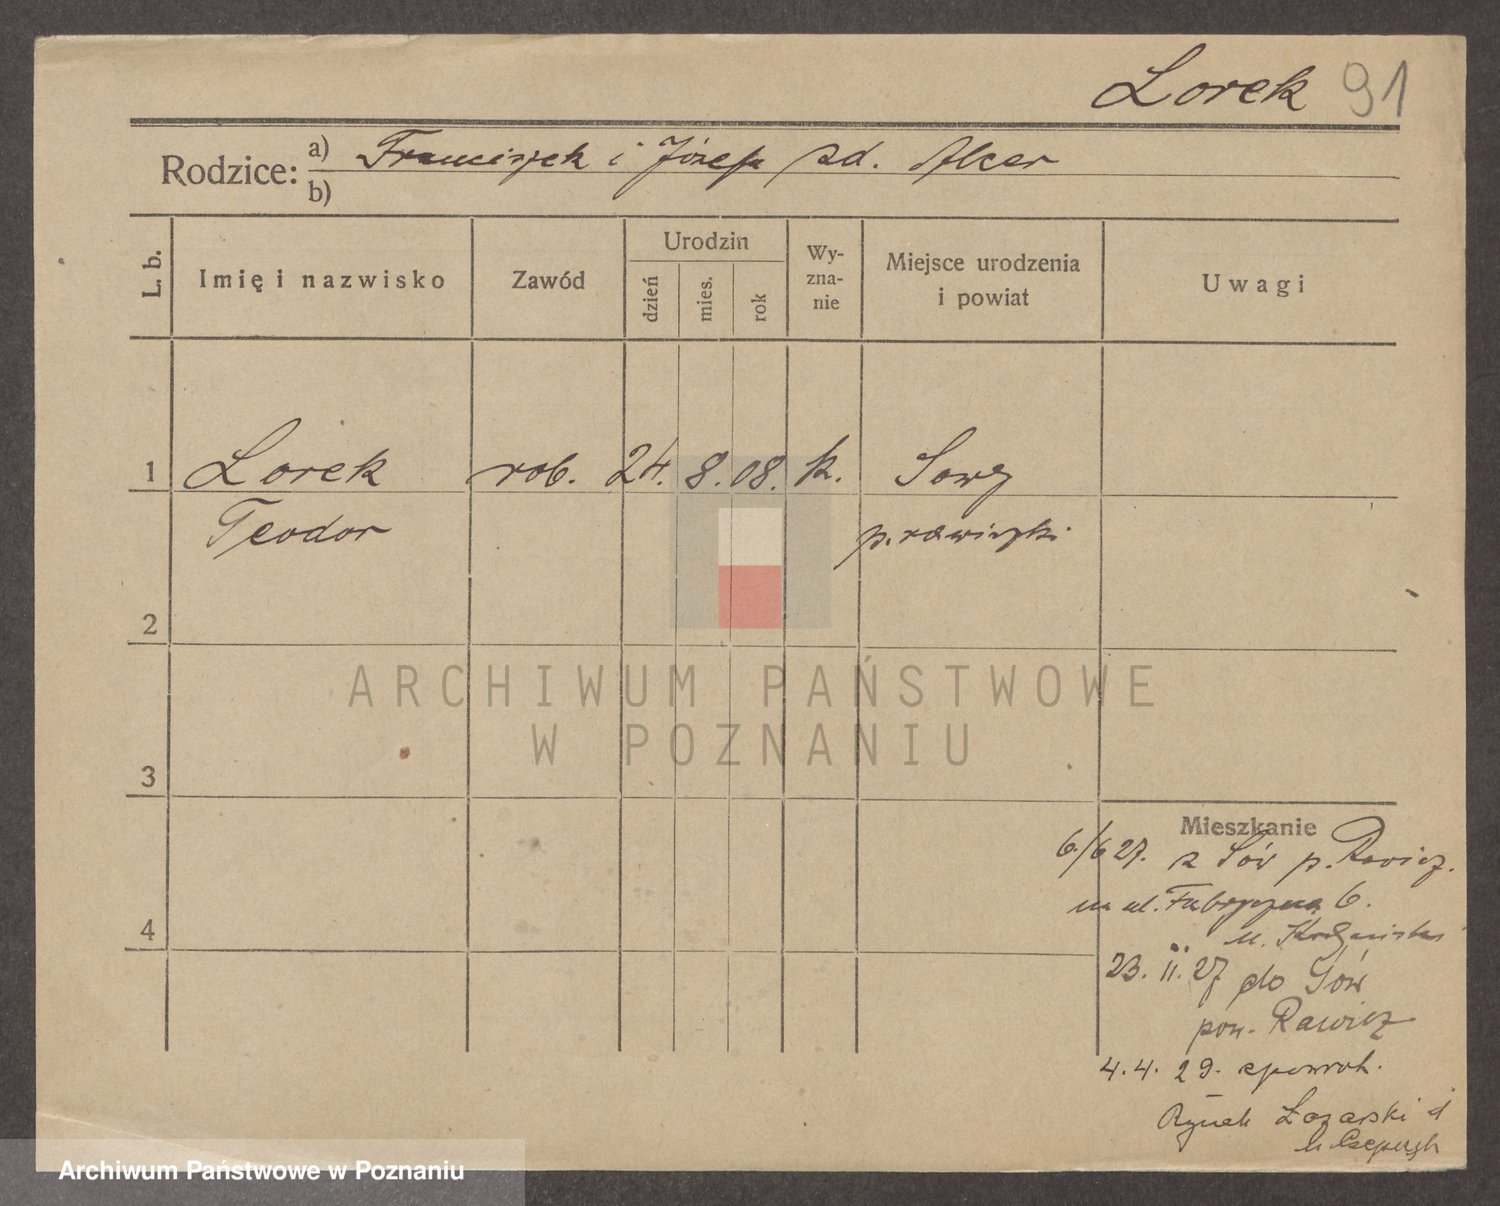 Lorek 91
Rodzice: a) Franciszek i Józefa zd. Alcer
b)
L. b. Imię i nazwisko Zawód Urodzin dzień mies. rok Wyznanie Miejsce urodzenia i powiat Uwagi
1 Lorek rob. 24. 8. 08. k. Sowy
Teodor p. rawicki
2
3
4
Mieszkanie
6/6 27. z Sów p. Rawicz.
na ul. Fabryczna 6.
u.
23. II. 27 do Sów
pow. Rawicz
4. 4. 29. zpowrot.
Rynek Łazarski
u
ARCHIWUM PAŃSTWOWE
W POZNANIU
Archiwum Państwowe w Poznaniu